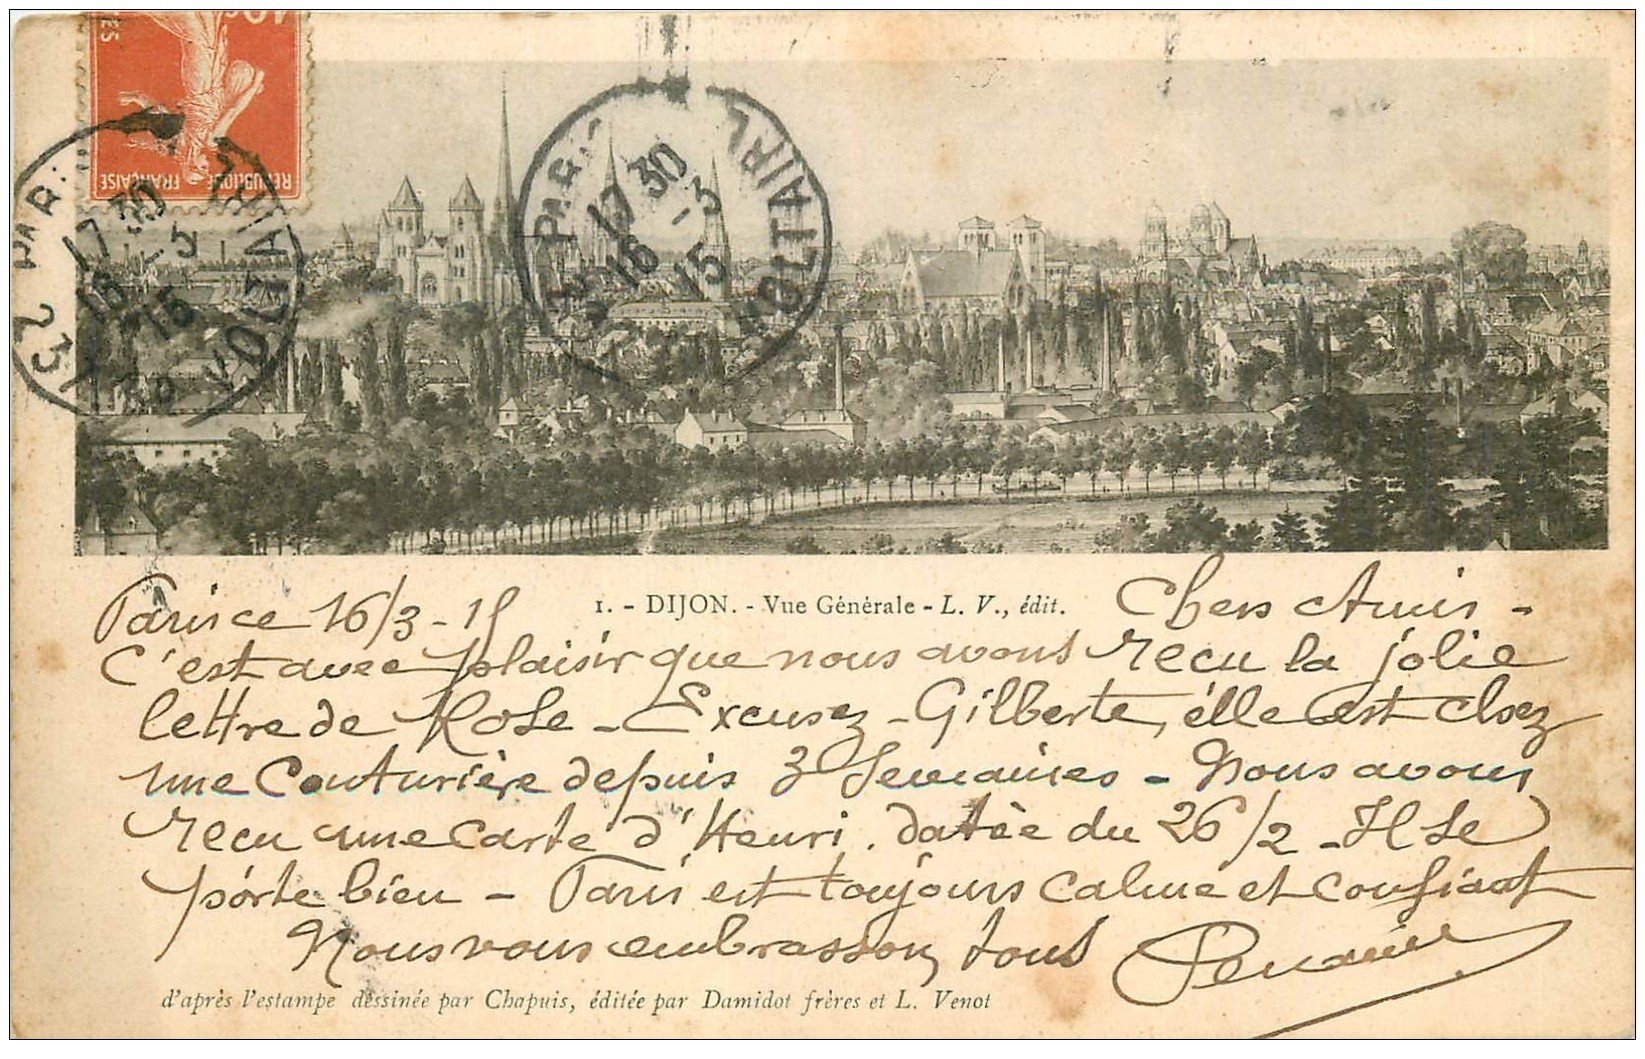 10c
TES
RÉPUBLIQUE FRANÇAISE
PARIS
17 30
16 - 3
15
VOLTAIRE
PARIS
17 30
16 - 3
15
VOLTAIRE
1. - DIJON. - Vue Générale - L. V., édit.
Paris ce 16/3 - 15 Chers Amis -
C'est avec plaisir que nous avons recu la jolie
lettre de Rose - Excusez - Gilberte, élle est chez
une Couturière depuis 3 Semaines - Nous avons
recu une carte d'Henri. datée du 26/2 - Il se
pórte bien - Paris est toujours calme et confiant
Nous vous embrassons tous
d'après l'estampe dessinée par Chapuis, éditée par Damidot frères et L. Venot